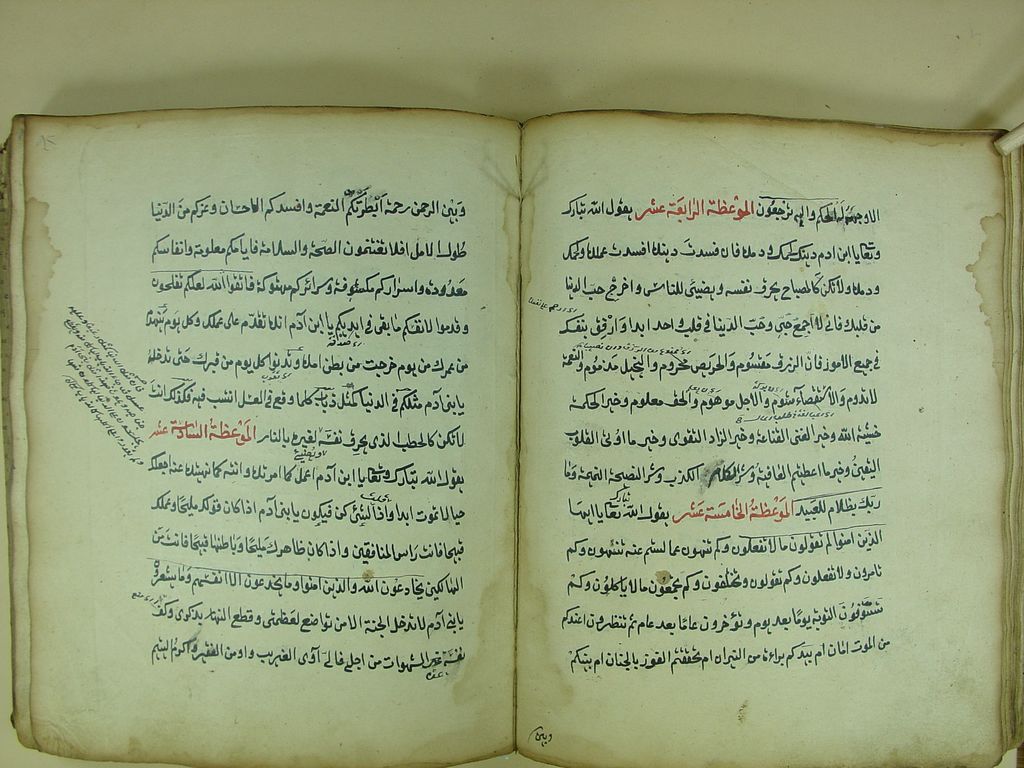 الا وجهه له الحكم واليه ترجعون الموعظة الرابعة عشر يقول الله تبارك
وتعالى يا ابن آدم دينك لحمك ودمك فان فسدت دينك افسدت عملك ولحمك
ودمك ولا تكن كالمصباح يحرق نفسه ويضيئ للناس واخرج حب الدنيا
من قلبك فاني لا اجمع حبي وحب الدنيا في قلب واحد ابدا وارفق بنفسك
في جميع الامور فان الرزق مقسوم والحريص محروم والبخيل مذموم والنعمة
لا تدوم والاستقصاء شوم والاجل موهوم والحق معلوم وخير الحكمة
خشية الله وخير الغنى القناعة وخير الزاد التقوى وخير ما اوتي القلوب
اليقين وخير ما اعطيتم العافية وشر الكلام الكذب وشر النصيحة النميمة وما
ربك بظلام للعبيد الموعظة الخامسة عشر يقول الله تبارك تعالى يا ايها
الذين امنوا لم تقولون ما لا تفعلون وكم تنهون عما لستم عنه تنتهون وكم
تامرون ولا تفعلون وكم تقولون وتخلفون وكم تجمعون ما لا ياكلون وكم
تسوفون التوبة يوما بعد يوم وتؤخرون عاما بعد عام ثم تنتظرون اعندكم
من الموت امان ام بيدكم براءة من النيران ام تحققتم الفوز بالجنان ام بينكم
وبين الرحمن رحمة ابطرتكم النعمة وافسدكم الاحسان وغركم من الدنيا
طول الامل افلا تغتنمون الصحة والسلامة فايامكم معلومة وانفاسكم
معدودة واسراركم مكشوفة وسرائركم مهتوكة فاتقوا الله لعلكم تفلحون
وقدموا لانفسكم ما بقي في ايديكم يا ابن آدم انك تقدم على عملك وكل يوم تهدم
من عمرك من يوم خرجت من بطن امك وتدنوا كل يوم من قبرك حتى تدخله
يا ابن آدم مثلكم في الدنيا كمثل ذباب كلما وقع في العسل انتشب فيه فكذلك انت
لا تكن كالحطب لذي يحرق نفسه لغيره بالنار الموعظة السادسة عشر
يقول الله تبارك وتعالى يا ابن آدم اعمل كما امرتك وانته كما نهيتك عنه اجعلك
حيا لا تموت ابدا واذا لشيئ كن فيكون يا ابن آدم اذا كان قولك مليحا وعملك
قبيحا فانت راس المنافقين واذا كان ظاهرك مليحا وباطنك قبيحا فانت من
الهالكين يخادعون الله والذين امنوا وما يخدعون الا انفسهم وما يشعرون
يا ابن آدم لا تدخل الجنة الا من تواضع لعظمتي وقطع النهار بذكري وكف
نفسه عن الشهوات من اجلي فاني آوي الغريب واومن الفقير واكرم اليتيم